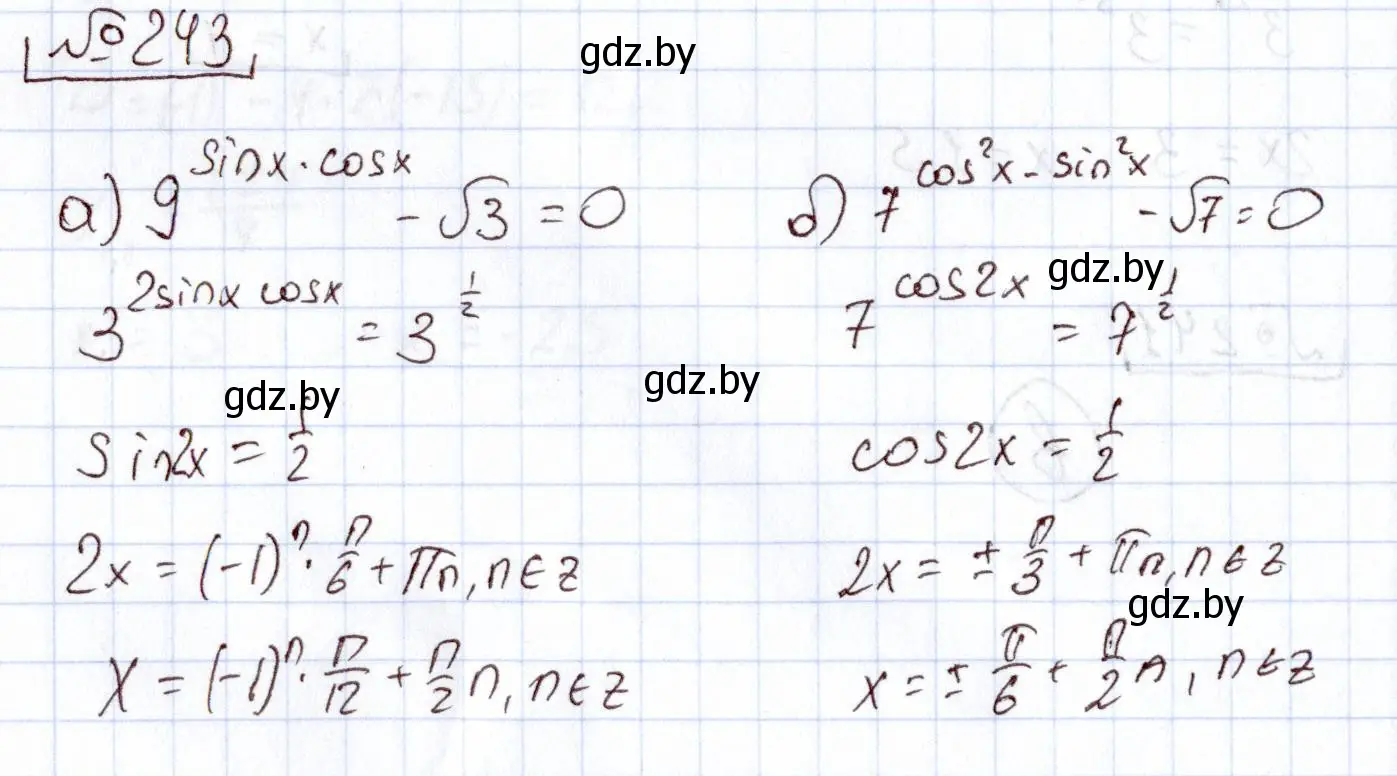 №243
gdz.by
а) 9^(sinx·cosx) - √3 = 0
3^(2sinx cosx) = 3^(1/2)
gdz.by
sin2x = 1/2
2x = (-1)^n · π/6 + πn, n∈z
x = (-1)^n · π/12 + π/2 n, n∈z
gdz.by
б) 7^(cos²x - sin²x) - √7 = 0
gdz.by
7^(cos2x) = 7^(1/2)
cos2x = 1/2
2x = ± π/3 + πn, n∈z
gdz.by
x = ± π/6 + π/2 n, n∈z